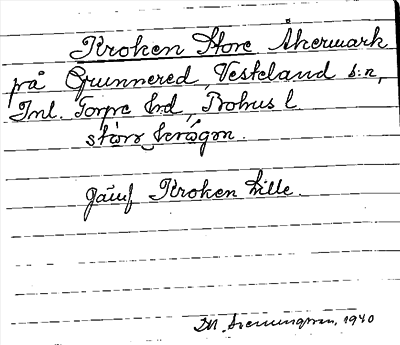 Kroken Store Åkermark
på Grunnered, Västeland s:n,
Inl. Torpe hrd, Bohus l
störr krågen.
Jämf Kroken Lille.
1940